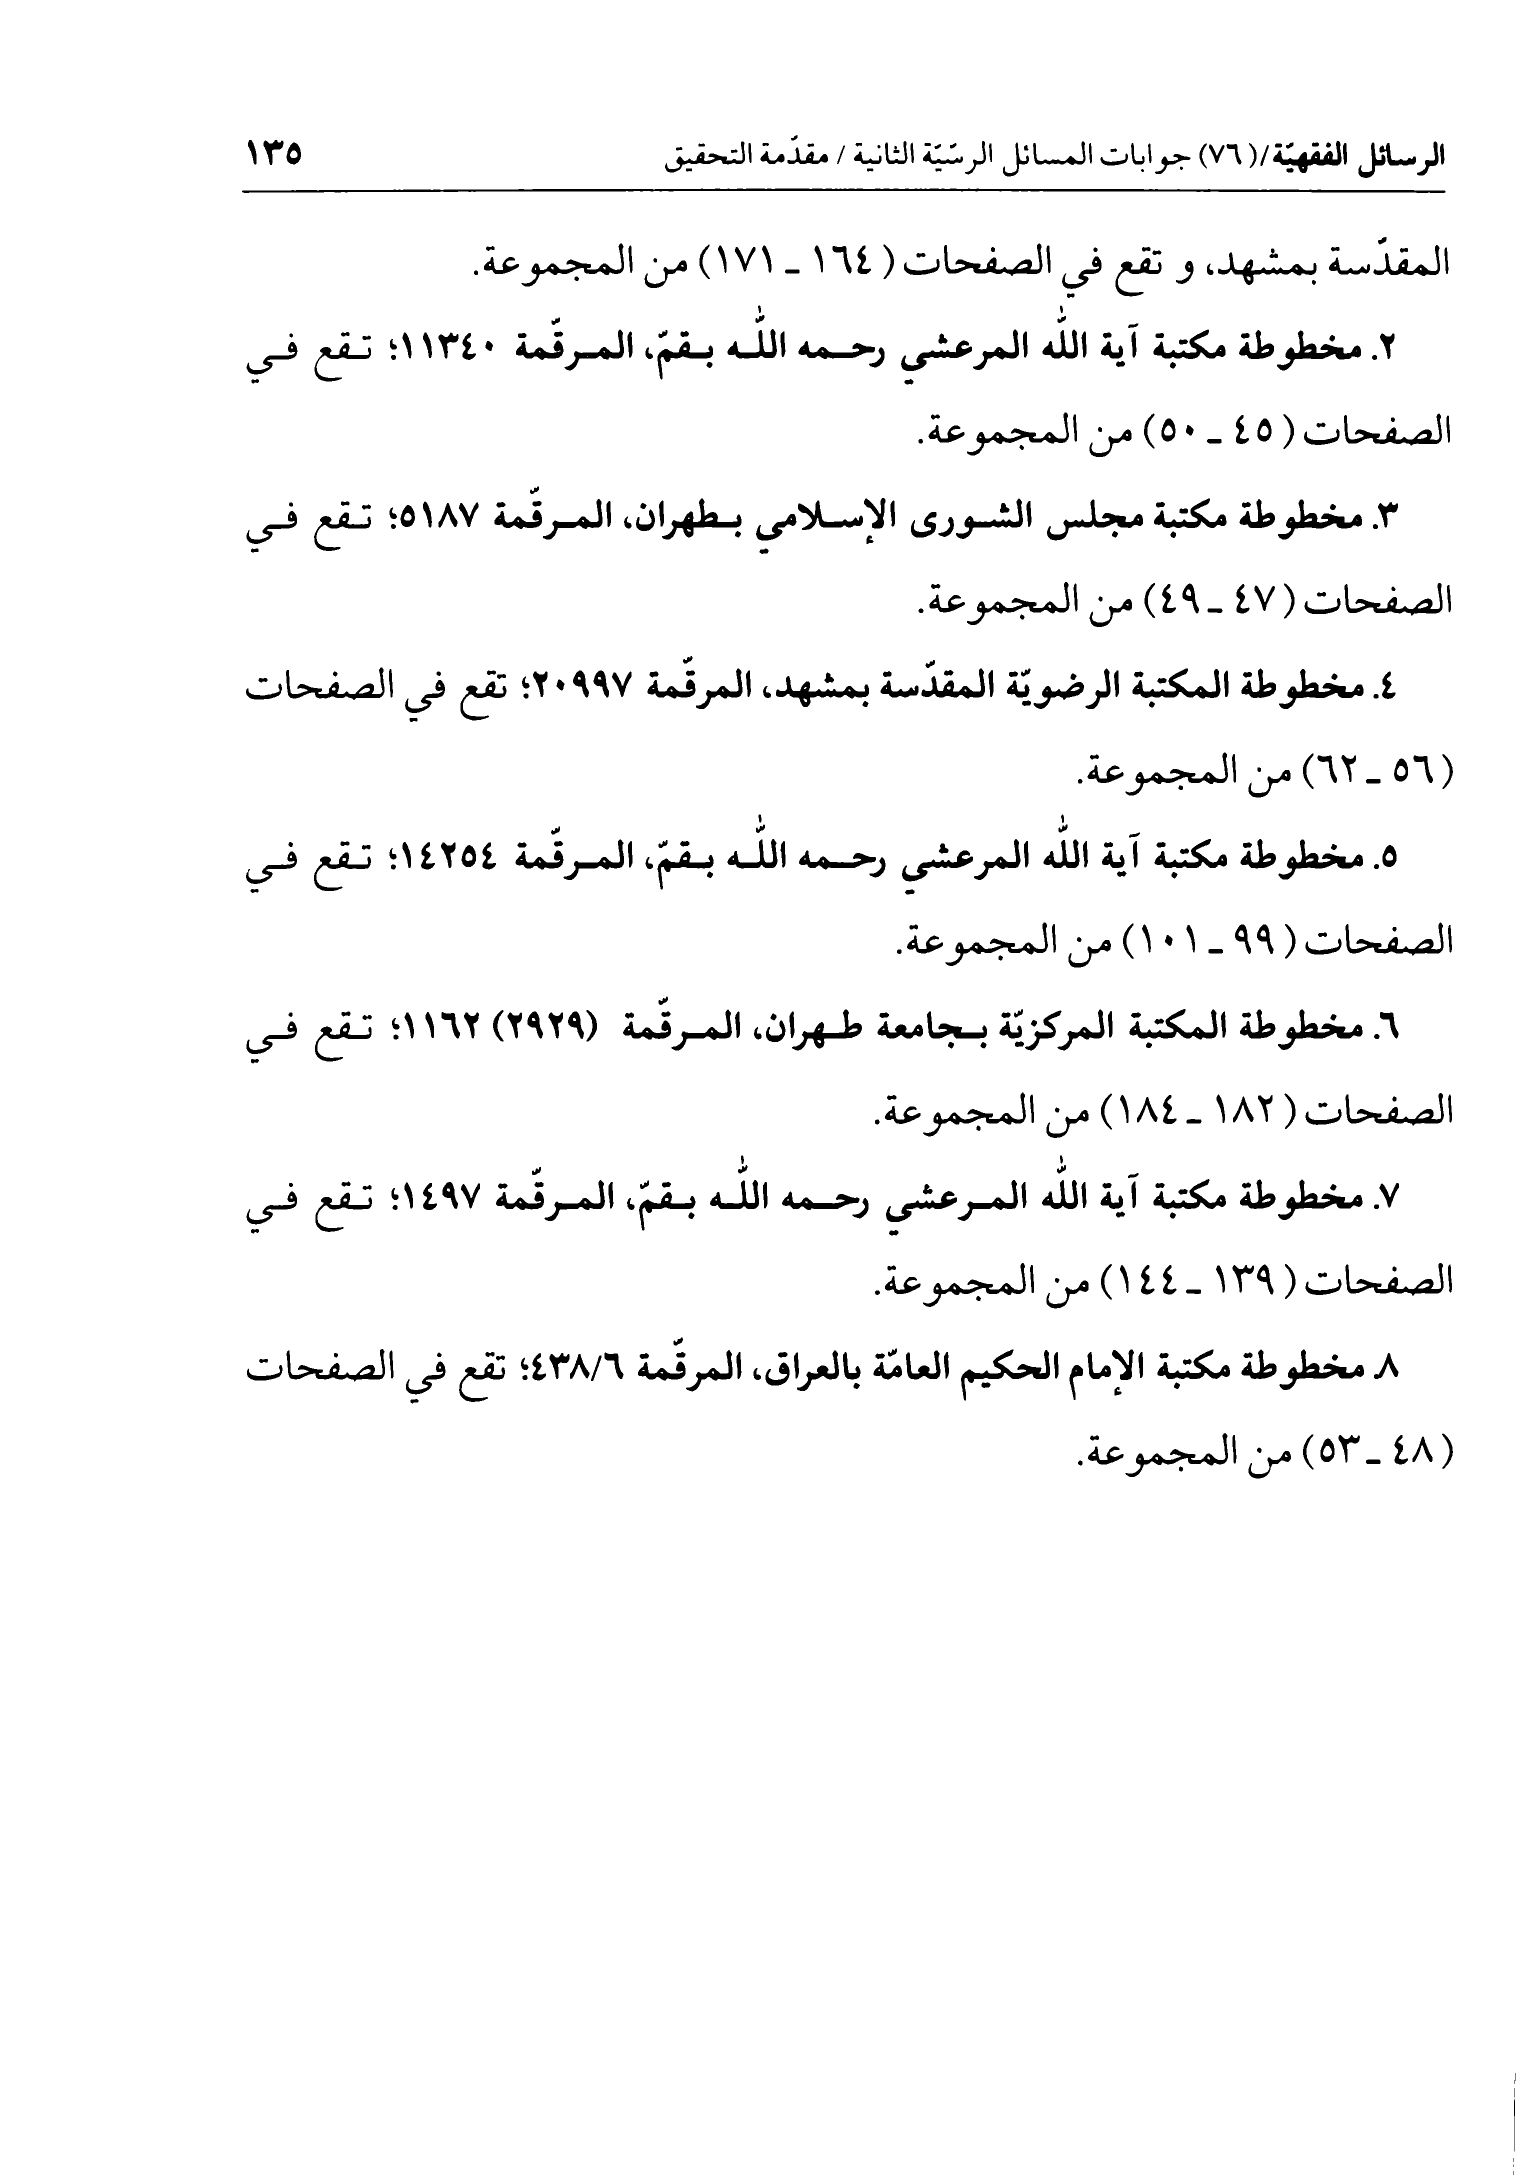 الرسائل الفقهيّة/(٧٦) جوابات المسائل الرسّيّة الثانية / مقدّمة التحقيق ١٣٥
المقدّسة بمشهد، و تقع في الصفحات (١٦٤ ـ ١٧١) من المجموعة.
٢. مخطوطة مكتبة آية اللّٰه المرعشي رحـمه اللّٰـه بـقمّ، المـرقّمة ١١٣٤٠؛ تـقع فـي
الصفحات (٤٥ ـ ٥٠) من المجموعة.
٣. مخطوطة مكتبة مجلس الشـورى الإسـلامي بـطهران، المـرقّمة ٥١٨٧؛ تـقع فـي
الصفحات (٤٧ ـ ٤٩) من المجموعة.
٤. مخطوطة المكتبة الرضويّة المقدّسة بمشهد، المرقّمة ٢٠٩٩٧؛ تقع في الصفحات
(٥٦ ـ ٦٢) من المجموعة.
٥. مخطوطة مكتبة آية اللّٰه المرعشي رحـمه اللّٰـه بـقمّ، المـرقّمة ١٤٢٥٤؛ تـقع فـي
الصفحات (٩٩ ـ ١٠١) من المجموعة.
٦. مخطوطة المكتبة المركزيّة بـجامعة طـهران، المـرقّمة (٢٩٢٩) ١١٦٢؛ تـقع فـي
الصفحات (١٨٢ ـ ١٨٤) من المجموعة.
٧. مخطوطة مكتبة آية اللّٰه المـرعشي رحـمه اللّٰـه بـقمّ، المـرقّمة ١٤٩٧؛ تـقع فـي
الصفحات (١٣٩ ـ ١٤٤) من المجموعة.
٨. مخطوطة مكتبة الإمام الحكيم العامّة بالعراق، المرقّمة ٤٣٨/٦؛ تقع في الصفحات
(٤٨ ـ ٥٣) من المجموعة.